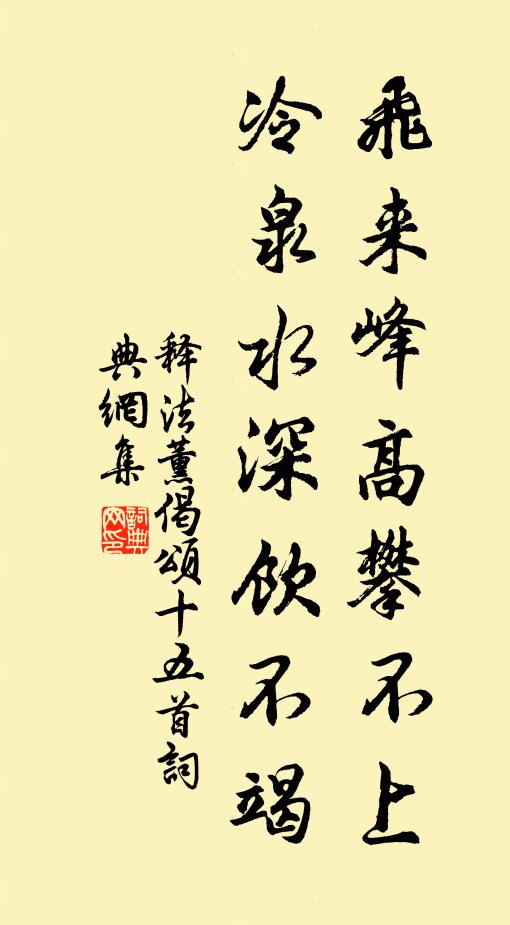 飛来峰高攀不上
冷泉水深飲不竭
释法薰偈頌十五首詞
典網集
詞典网印